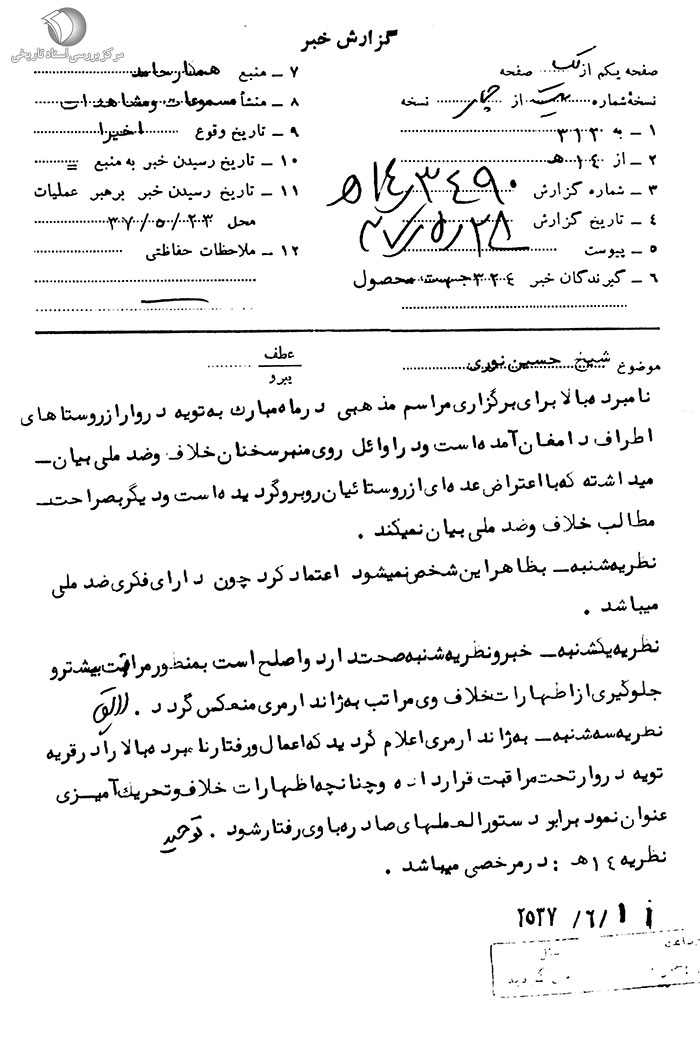 مرکز بررسی اسناد تاریخی
گزارش خبر
صفحه یکم از یک صفحه
نسخهٔ شماره از نسخه
۱ ـ به ۳۱۲
۲ ـ از ۱۴ هـ
۳ ـ شماره گزارش ۱۴/۳۴۹۰ هـ
۴ ـ تاریخ گزارش ۳۷/۵/۲۸
۵ ـ پیوست
۶ ـ گیرندگان خبر ۳۲۴ جهت محصول
۷ ـ منبع همکار حامد
۸ ـ منشأ مسموعات و مشاهدات
۹ ـ تاریخ وقوع اخیرا
۱۰ ـ تاریخ رسیدن خبر به منبع =
۱۱ ـ تاریخ رسیدن خبر برهبر عملیات
محل ۳۷/۵/۲۳
۱۲ ـ ملاحظات حفاظتی
موضوع شیخ حسین نوری
عطف
پیرو
نامبرده بالا برای برگزاری مراسم مذهبی در ماه مبارك به تویه دروار از روستاهای
اطراف دامغان آمده است و در اوائل روی منبر سخنان خلاف و ضد ملی بیان ـ
میداشته که با اعتراض عده ای از روستائیان روبرو گردیده است و دیگر بصراحت ـ
مطالب خلاف و ضد ملی بیان نمیکند .
نظریه شنبه ـ بظاهر این شخص نمیشود اعتماد کرد چون دارای فکری ضد ملی
میباشد .
نظریه یکشنبه ـ خبر و نظریه شنبه صحت دارد و اصلح است بمنظور مراقبت بیشتر و
جلوگیری از اظهارات خلاف وی مراتب به ژاندارمری منعکس گردد .
نظریه سه شنبه ـ به ژاندارمری اعلام گردید که اعمال و رفتار نامبرده بالا را در قریه
تویه دروار تحت مراقبت قرار داده و چنانچه اظهارات خلاف و تحریك آمیزی
عنوان نمود برابر دستورالعملهای صادره با وی رفتار شود . توحید
نظریه ۱۴ هـ : در مرخصی میباشد .
۲۵۳۷ /۶/۱